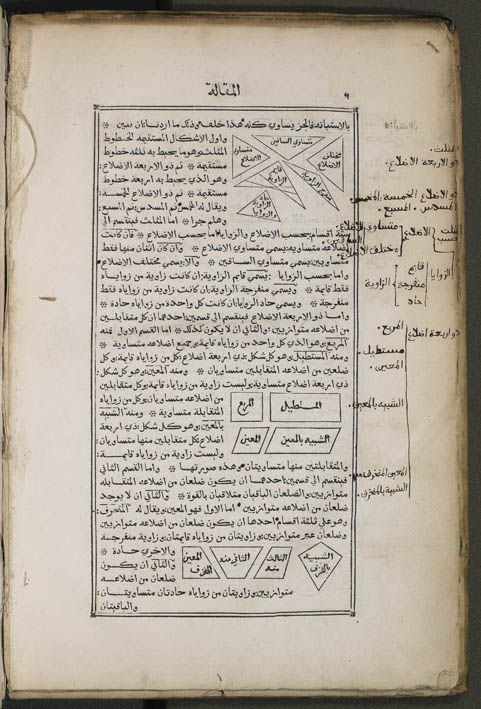 المقالة
٩
بالاستبانة فالجزء يساوي كله هذا خلف وذلك ما اردنا ان نبين
واول الاشكال المستقيمة الخطوط
المثلث وهو ما يحيط به ثلثة خطوط
مستقيمة ثم ذو الاربعة الاضلاع
وهو الذي يحيط به اربعة خطوط
مستقيمة ثم ذو الاضلاع الخمسة
ويقال له المخمس ثم المسدس ثم المسبع
وهلم جرا اما المثلث فينقسم الى
متساوي الساقين
متساوي الاضلاع
مختلف الاضلاع
قائم الزاوية
منفرج الزاوية
حاد الزوايا
ستة اقسام بحسب الاضلاع والزوايا اما بحسب الاضلاع فان كانت
اضلاعه متساوية يسمى متساوي الاضلاع وان كان اثنان منها فقط
متساويين يسمى متساوي الساقين والا يسمى مختلف الاضلاع
واما بحسب الزوايا يسمى قائم الزاوية ان كانت زاوية من زواياه
فقط قائمة ويسمى منفرجة الزاوية ان كانت زاوية من زواياه فقط
منفرجة ويسمى حاد الزوايا ان كانت كل واحدة من زواياه حادة
واما ذو الاربعة الاضلاع فينقسم الى قسمين احدهما ان كل متقابلين
من اضلاعه متوازيين والثاني ان لا يكون كذلك اما القسم الاول فمنه
المربع وهو الذي كل واحد من زواياه قائمة وجميع اضلاعه متساوية
ومنه المستطيل وهو كل شكل ذي اربعة اضلاع كل من زواياه قائمة وكل
ضلعين من اضلاعه المتقابلين متساويان ومنه المعين وهو كل شكل
ذي اربعة اضلاع متساوية وليست زاوية من زواياه قائمة وكل متقابلين
من اضلاعه متساويان وكل من زواياه
المتقابلة متساوية ومنه الشبيه
بالمعين وهو كل شكل ذي اربعة
اضلاع كل متقابلين منها متساويان
وليست زاوية من زواياه قائمة
المربع
المستطيل
المعين
الشبيه بالمعين
والمتقابلتين منها متساويتان وهذه صورتها واما القسم الثاني
فينقسم الى قسمين احدهما ان يكون ضلعان من اضلاعه المتقابله
متوازيين والضلعان الباقيان متلاقيان بالقوة والثاني ان لا يوجد
ضلعان من اضلاعه متوازيين اما الاول فهو المعين ويقال له المنحرف
وهو على ثلثة اقسام احدها ان يكون ضلعان من اضلاعه متوازيين
وضلعان غير متوازيين وزاويتان من زواياه قائمتان وزاوية منفرجة
والاخرى حادة
والثاني ان يكون
ضلعان من اضلاعه
المعين المنحرف
الثاني منه
الثالث منه
الشبيه بالمنحرف
متوازيين وزاويتان من زواياه حادتان متساويتان
والباقيتان
المثلث
ذو الاربعة الاضلاع
ذو الاضلاع الخمسة المخمس
المسدس المسبع
الاضلاع
متساوي الاضلاع
الساقين
مختلف الاضلاع
الزوايا
قايم
منفرجة
حاد
الزاوية
ذو اربعة اضلاع
المربع
مستطيل
المعين
الشبيه بالمعين
المعين المنحرف
الشبيه بالمنحرف